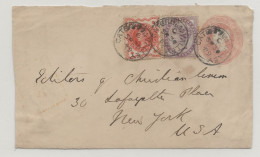 Editors of Christian Union
30 Lafayette Place
New York
U.S.A